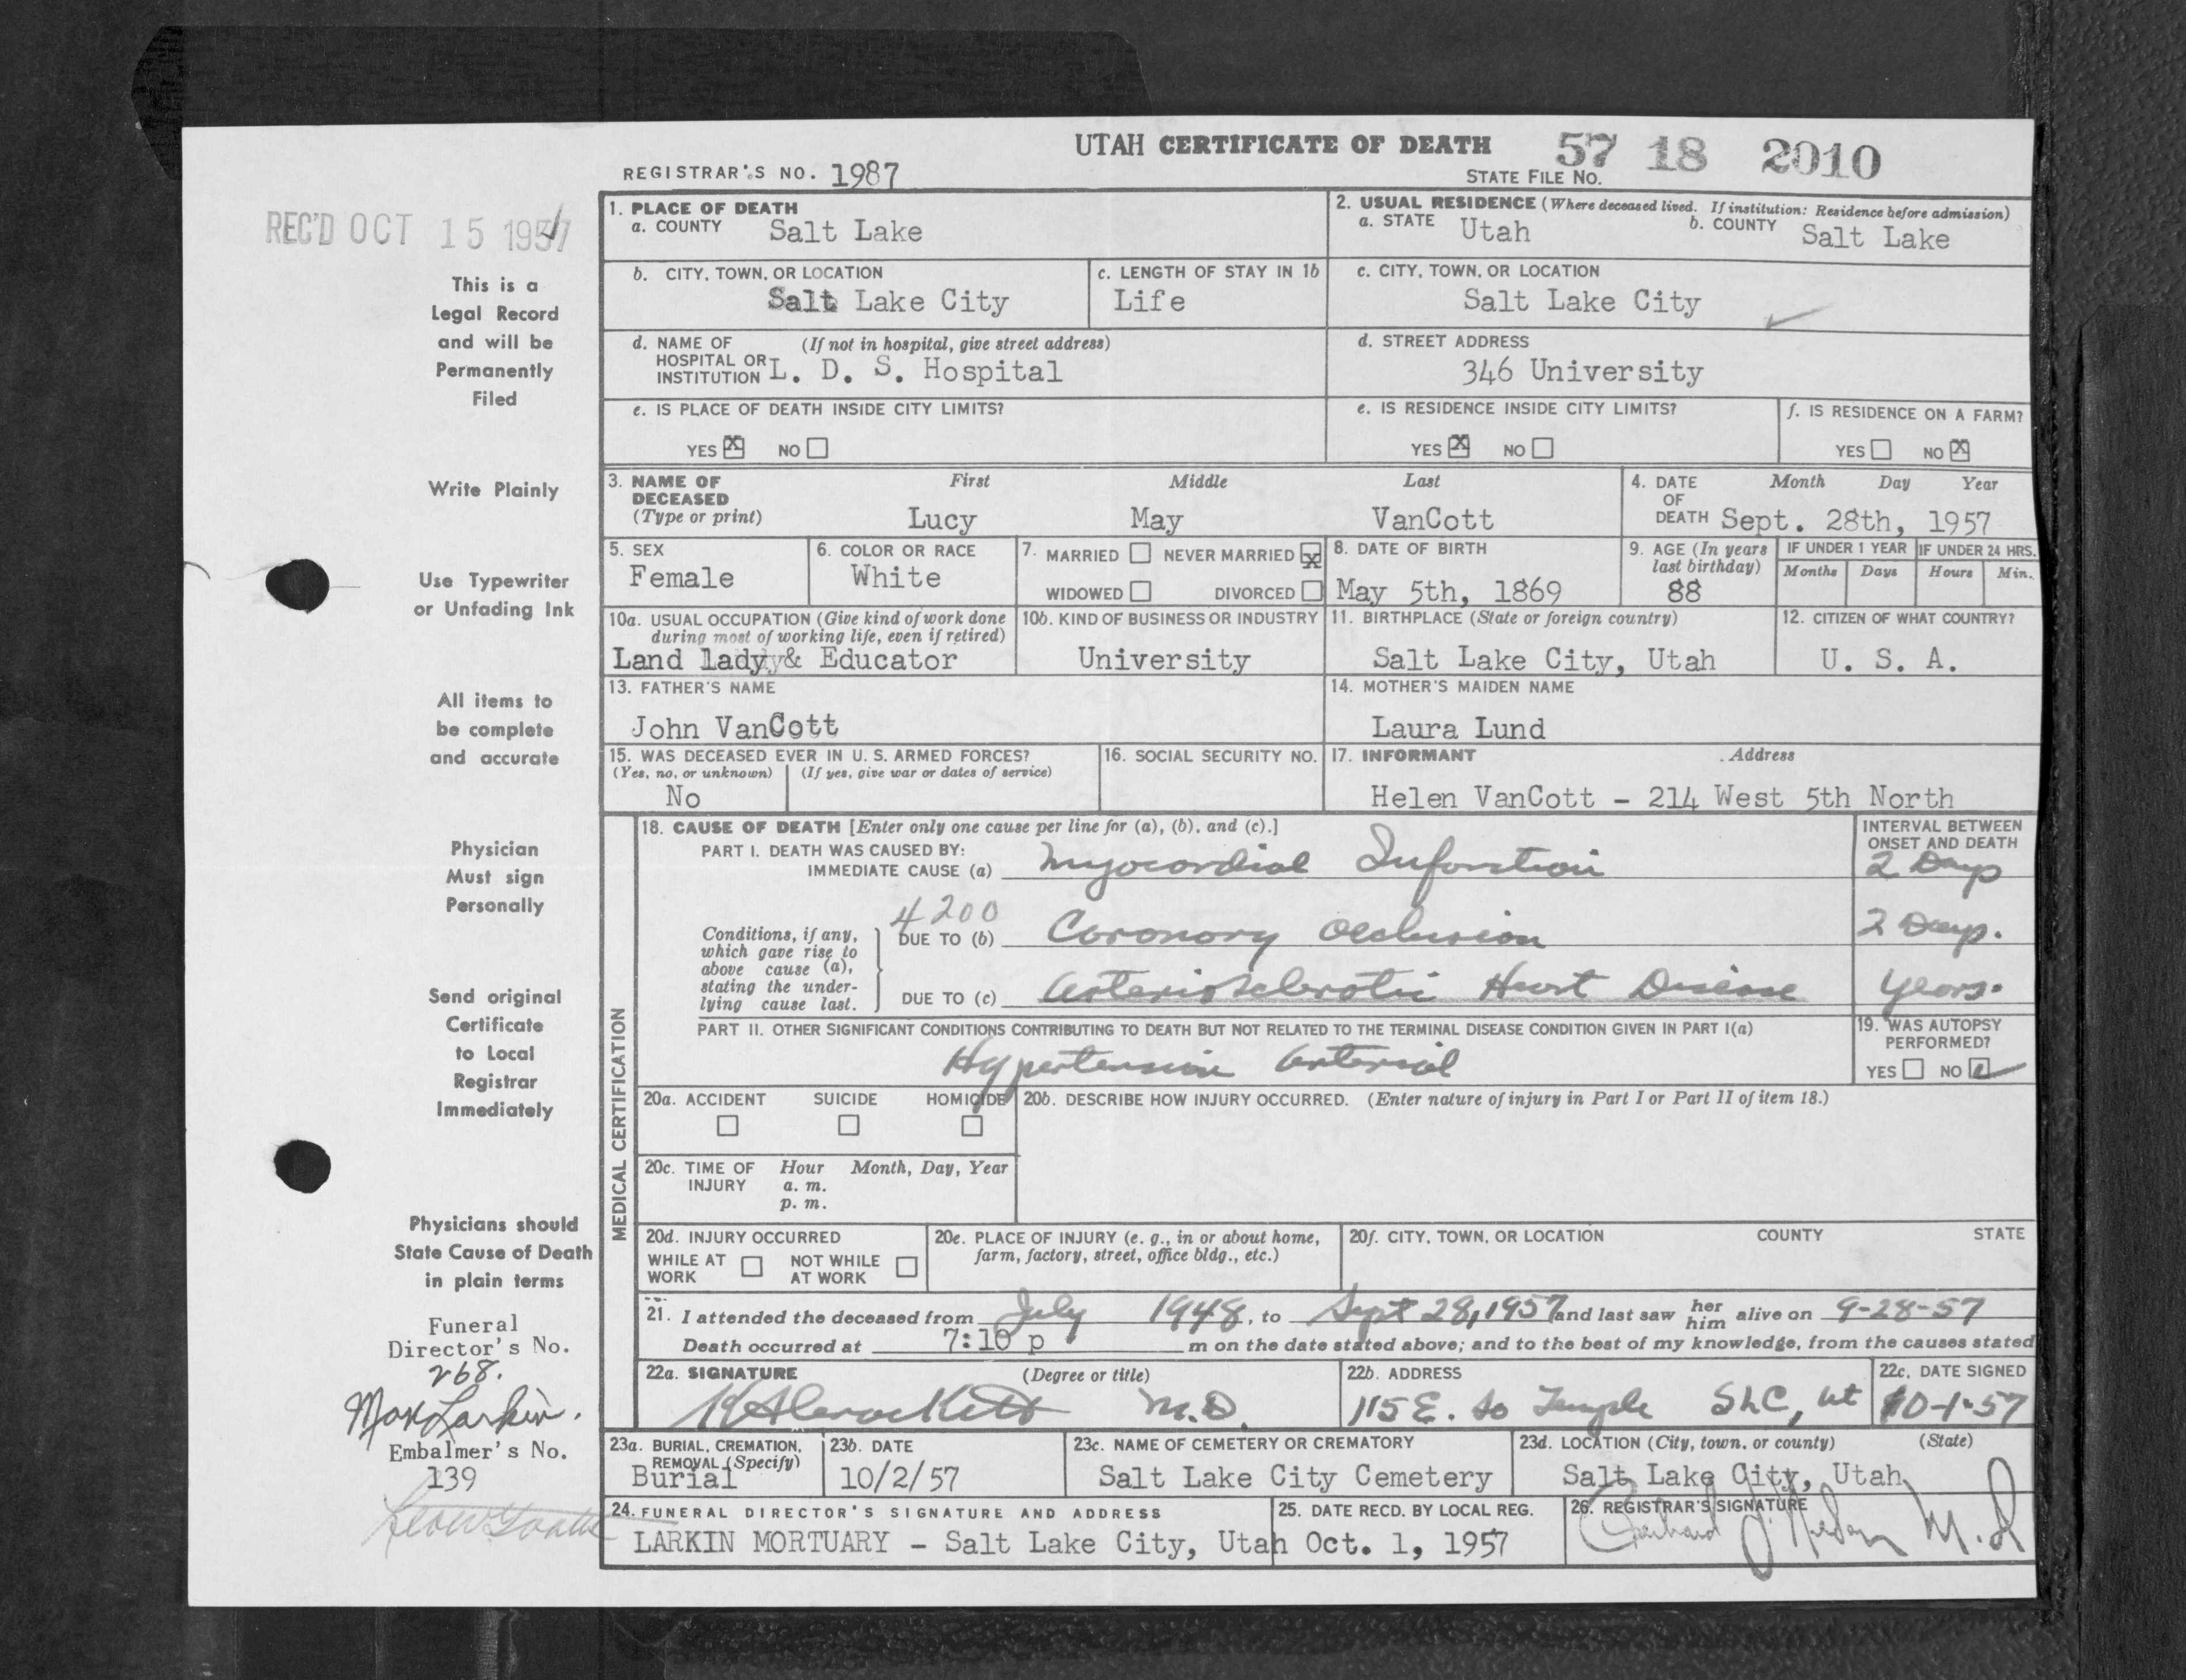 UTAH CERTIFICATE OF DEATH 57 18 2010
REGISTRAR'S NO. 1987 STATE FILE NO.
REC'D OCT 15 1957
This is a
Legal Record
and will be
Permanently
Filed
Write Plainly
Use Typewriter
or Unfading Ink
All items to
be complete
and accurate
Physician
Must sign
Personally
Send original
Certificate
to Local
Registrar
Immediately
Physicians should
State Cause of Death
in plain terms
Funeral
Director's No.
268.
Max Larkin.
Embalmer's No.
139
1. PLACE OF DEATH
a. COUNTY Salt Lake
2. USUAL RESIDENCE (Where deceased lived. If institution: Residence before admission)
a. STATE Utah b. COUNTY Salt Lake
b. CITY, TOWN, OR LOCATION
Salt Lake City
c. LENGTH OF STAY IN 1b
Life
c. CITY, TOWN, OR LOCATION
Salt Lake City
d. NAME OF (If not in hospital, give street address)
HOSPITAL OR
INSTITUTION L. D. S. Hospital
d. STREET ADDRESS
346 University
e. IS PLACE OF DEATH INSIDE CITY LIMITS?
YES X NO
e. IS RESIDENCE INSIDE CITY LIMITS?
YES X NO
f. IS RESIDENCE ON A FARM?
YES NO X
3. NAME OF First Middle Last
DECEASED
(Type or print) Lucy May VanCott
4. DATE Month Day Year
OF
DEATH Sept. 28th, 1957
5. SEX
Female
6. COLOR OR RACE
White
7. MARRIED NEVER MARRIED X
WIDOWED DIVORCED
8. DATE OF BIRTH
May 5th, 1869
9. AGE (In years
last birthday)
88
IF UNDER 1 YEAR
Months Days
IF UNDER 24 HRS.
Hours Min.
10a. USUAL OCCUPATION (Give kind of work done
during most of working life, even if retired)
Land lady & Educator
10b. KIND OF BUSINESS OR INDUSTRY
University
11. BIRTHPLACE (State or foreign country)
Salt Lake City, Utah
12. CITIZEN OF WHAT COUNTRY?
U. S. A.
13. FATHER'S NAME
John VanCott
14. MOTHER'S MAIDEN NAME
Laura Lund
15. WAS DECEASED EVER IN U. S. ARMED FORCES?
(Yes, no, or unknown) (If yes, give war or dates of service)
No
16. SOCIAL SECURITY NO.
17. INFORMANT Address
Helen VanCott - 214 West 5th North
MEDICAL CERTIFICATION
18. CAUSE OF DEATH [Enter only one cause per line for (a), (b), and (c).]
INTERVAL BETWEEN
ONSET AND DEATH
PART I. DEATH WAS CAUSED BY:
IMMEDIATE CAUSE (a) Myocardial Infarction 2 Days
4200
Conditions, if any,
which gave rise to
above cause (a),
stating the under-
lying cause last.
DUE TO (b) Coronary Occlusion 2 Days.
DUE TO (c) Arteriosclerotic Heart Disease Years.
PART II. OTHER SIGNIFICANT CONDITIONS CONTRIBUTING TO DEATH BUT NOT RELATED TO THE TERMINAL DISEASE CONDITION GIVEN IN PART I(a)
Hypertension Arterial
19. WAS AUTOPSY
PERFORMED?
YES NO
20a. ACCIDENT SUICIDE HOMICIDE
20b. DESCRIBE HOW INJURY OCCURRED. (Enter nature of injury in Part I or Part II of item 18.)
20c. TIME OF Hour Month, Day, Year
INJURY a. m.
p. m.
20d. INJURY OCCURRED
WHILE AT NOT WHILE
WORK AT WORK
20e. PLACE OF INJURY (e. g., in or about home,
farm, factory, street, office bldg., etc.)
20f. CITY, TOWN, OR LOCATION COUNTY STATE
21. I attended the deceased from July 1948, to Sept 28, 1957 and last saw her him alive on 9-28-57
Death occurred at 7:10 p m on the date stated above; and to the best of my knowledge, from the causes stated
22a. SIGNATURE (Degree or title)
M.D.
22b. ADDRESS
115 E. So Temple SLC, Ut
22c. DATE SIGNED
10-1-57
23a. BURIAL, CREMATION,
REMOVAL (Specify)
Burial
23b. DATE
10/2/57
23c. NAME OF CEMETERY OR CREMATORY
Salt Lake City Cemetery
23d. LOCATION (City, town, or county) (State)
Salt Lake City, Utah
24. FUNERAL DIRECTOR'S SIGNATURE AND ADDRESS
LARKIN MORTUARY - Salt Lake City, Utah
25. DATE RECD. BY LOCAL REG.
Oct. 1, 1957
26. REGISTRAR'S SIGNATURE
M.D